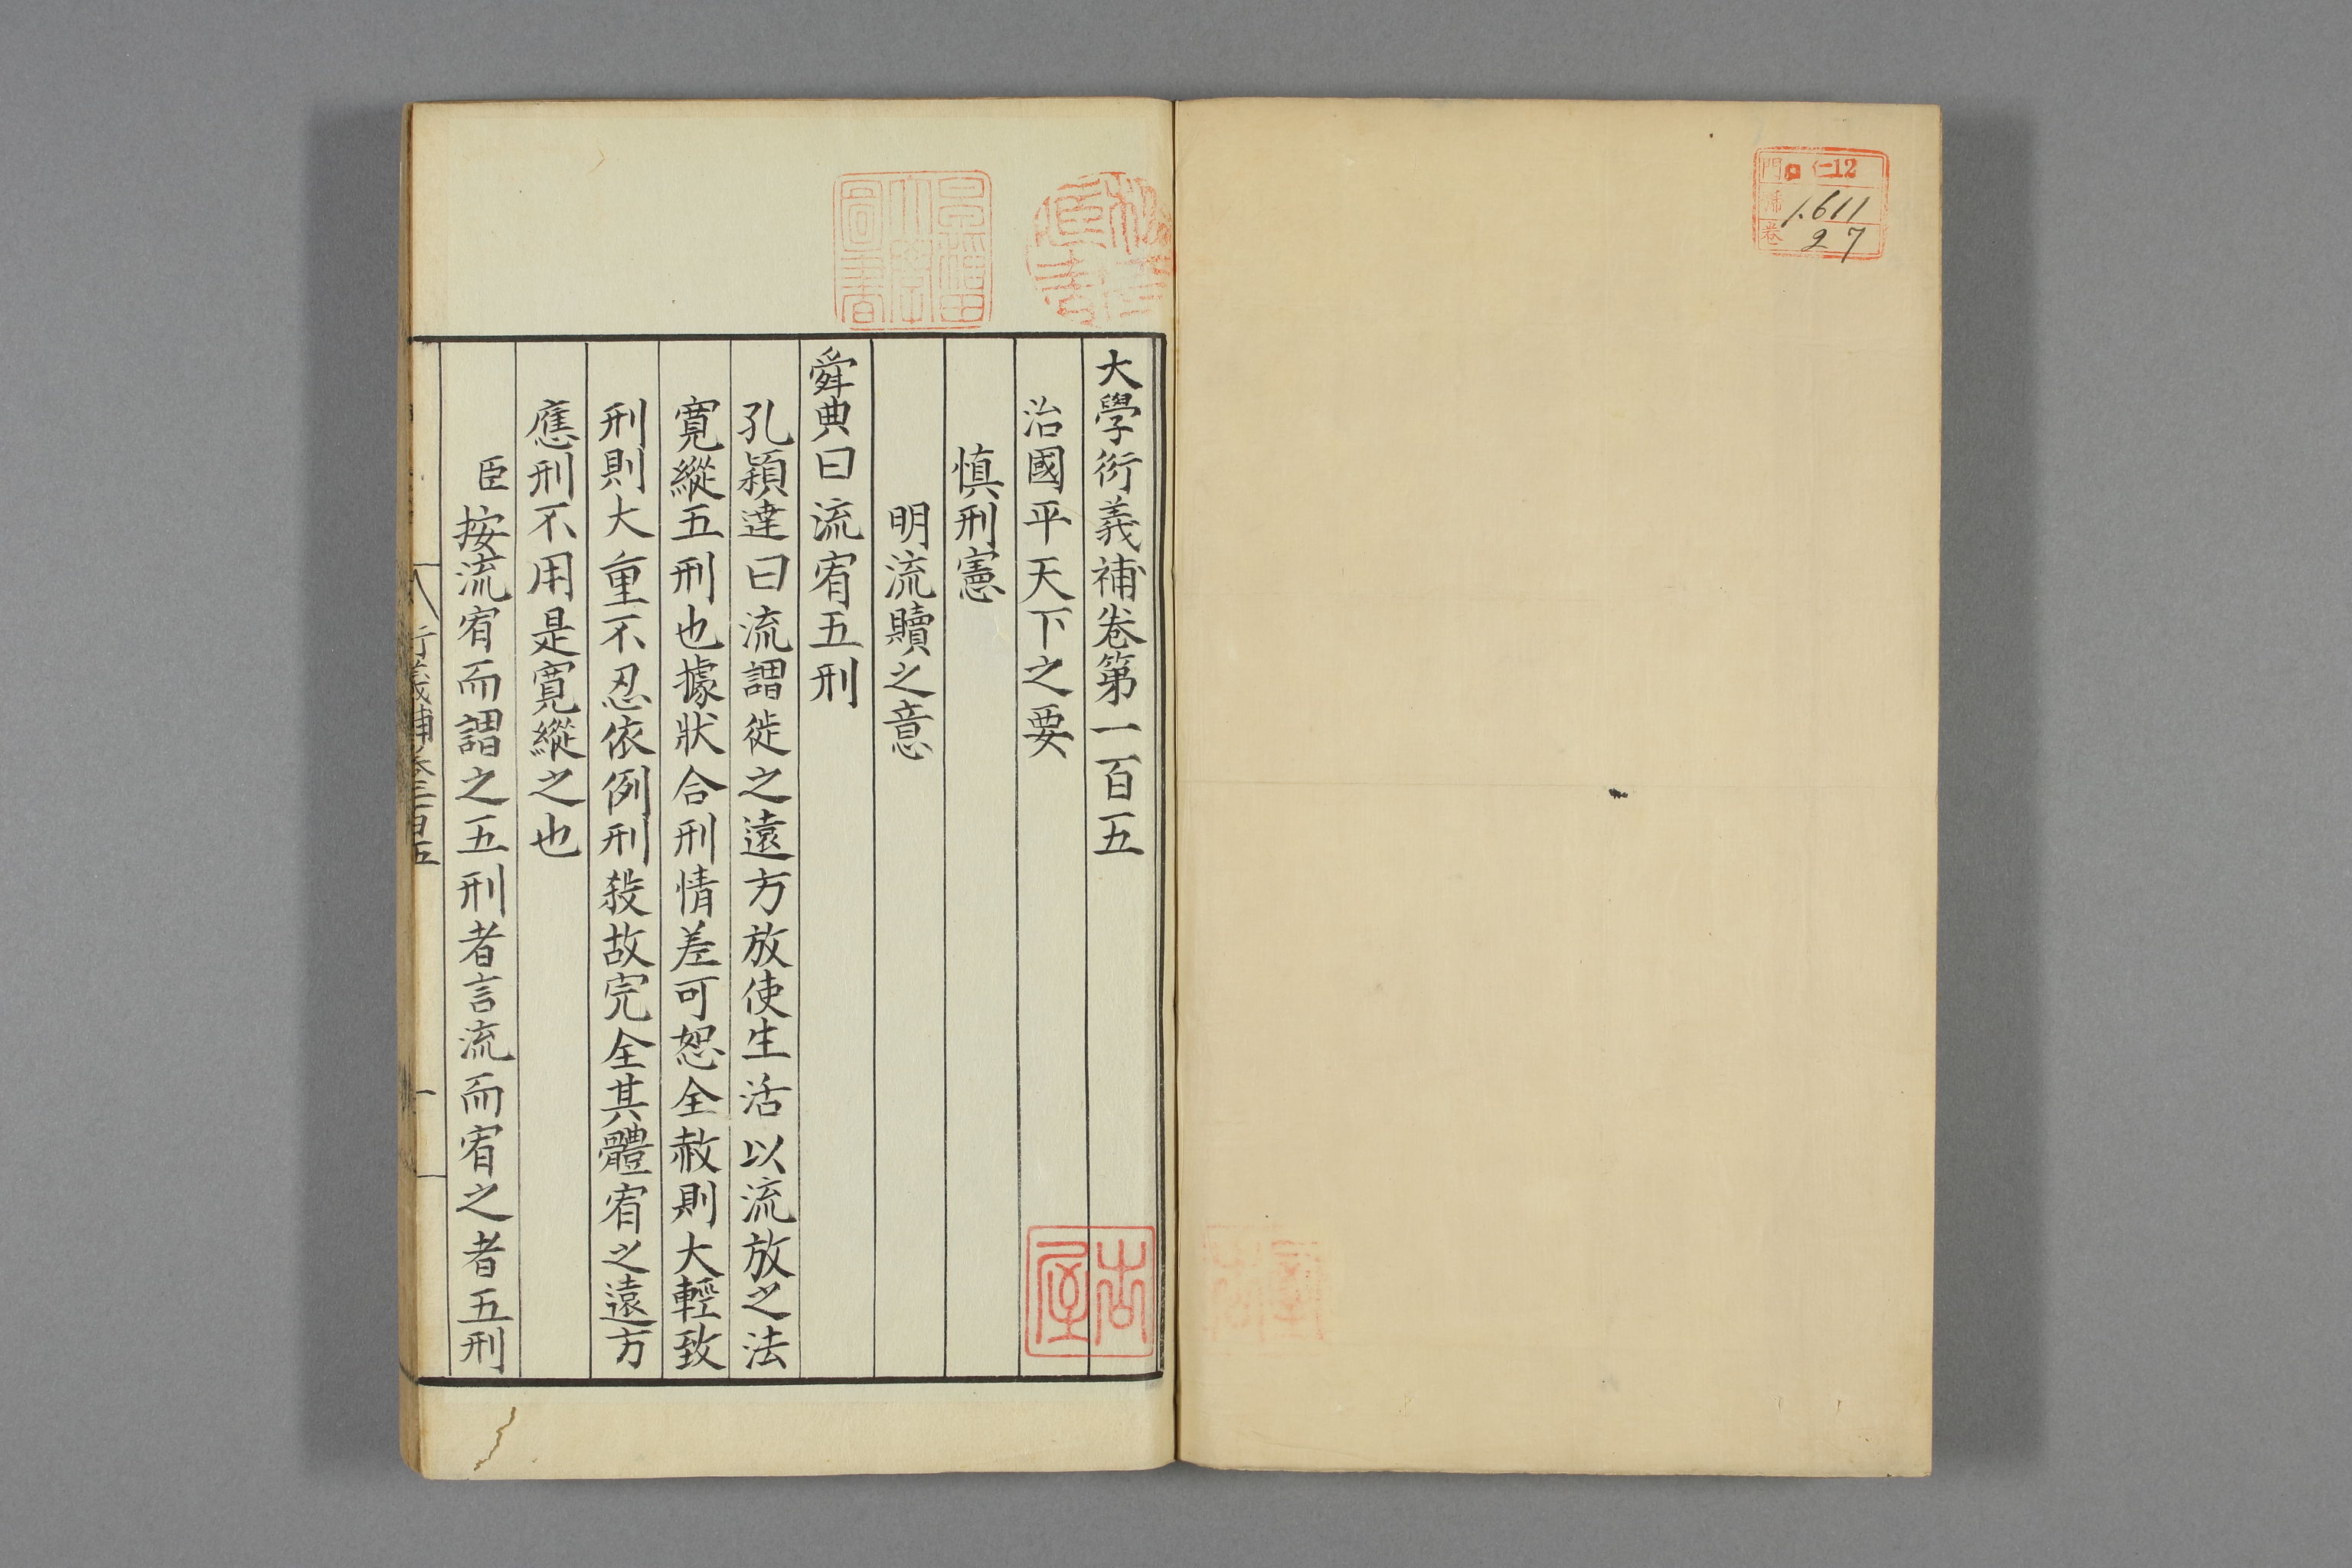 門 ロ 仁12
號 1.611
卷 27
大學衍義補卷第一百五
治國平天下之要
慎刑憲
明流贖之意
舜典曰流宥五刑
孔穎達曰流謂徙之遠方放使生活以流放之法
寬縱五刑也據狀合刑情差可恕全赦則大輕致
刑則大重不忍依例刑殺故完全其體宥之遠方
應刑不用是寬縱之也
臣按流宥而謂之五刑者言流而宥之者五刑
早稻田大學圖書